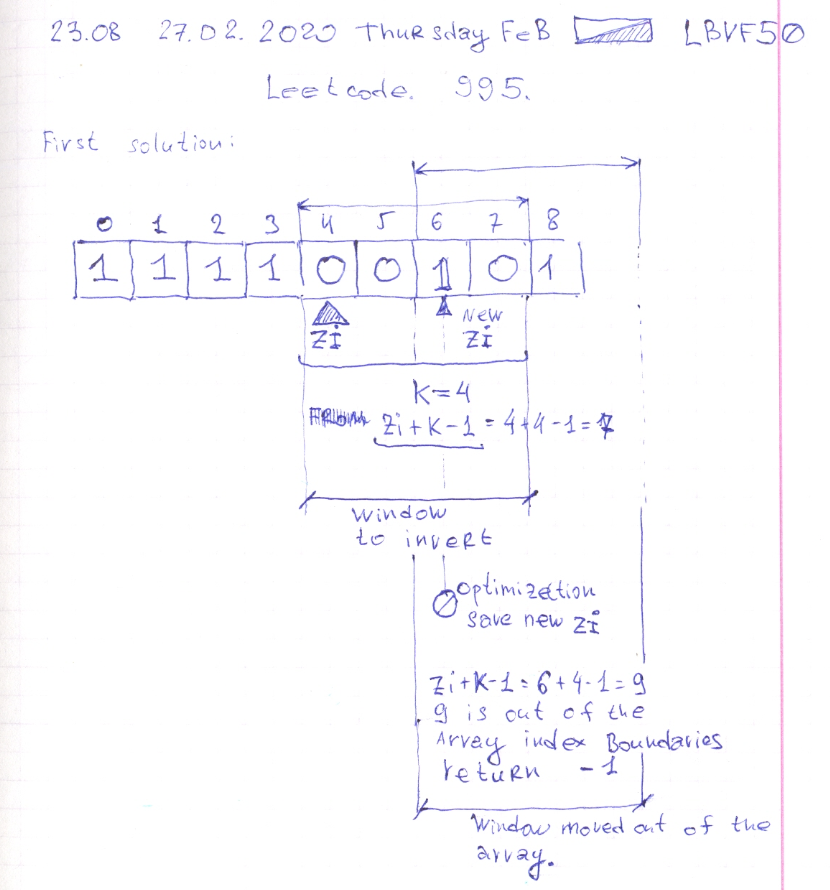 23.08 27.02.2020 Thursday FeB LBVF50
Leetcode. 995.
First solution:
0 1 2 3 4 5 6 7 8
1 1 1 1 0 0 1 0 1
zi New zi
K=4
zi+K-1 = 4+4-1=7
Window
to invert
Optimization
save new zi
zi+K-1=6+4-1=9
9 is out of the
Array index Boundaries
return -1
Window moved out of the
array.